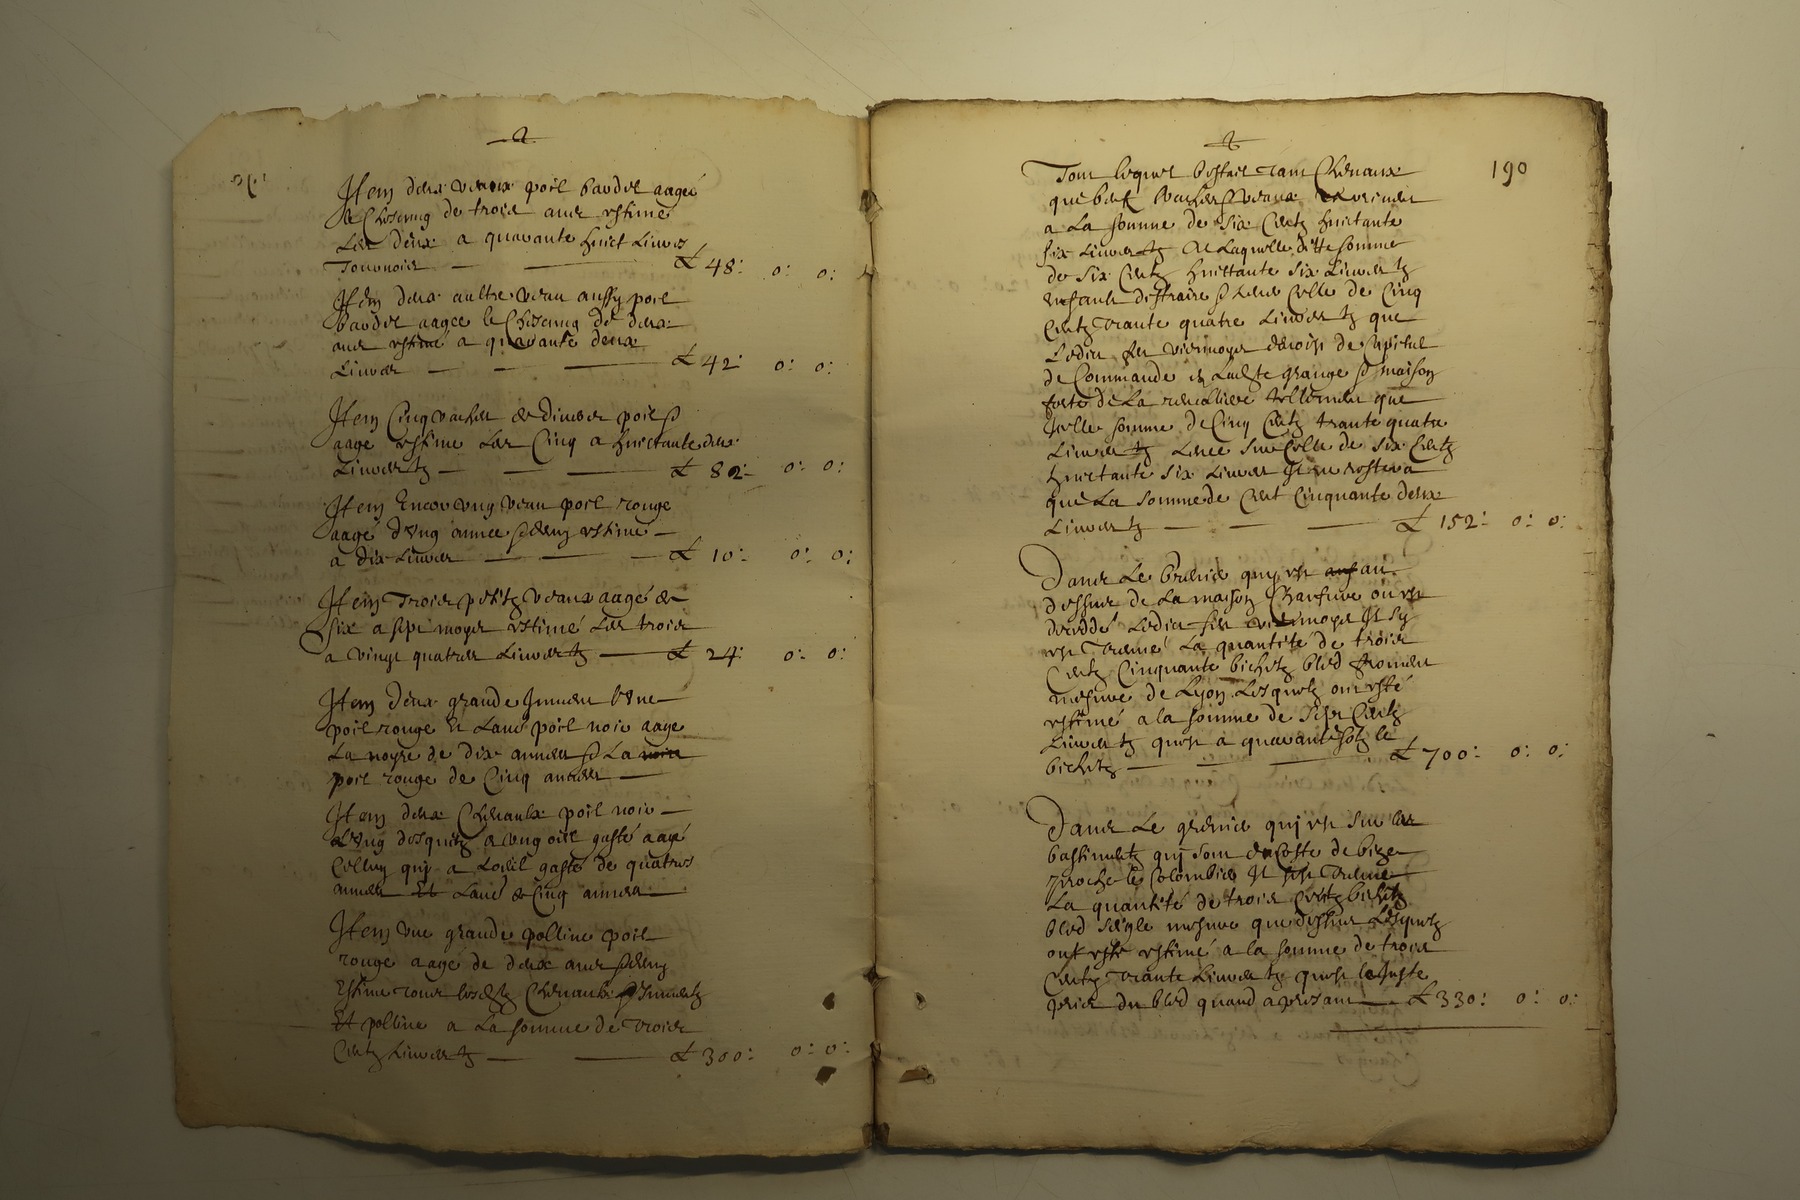 Item deux veaux poil baudet aagés
le chescung de trois ans estimé
Les deux a quarante huict Livres
Tournois — — £ 48: 0: 0:
Item deux aultre veau aussy poil
baudet aagee le chescung de deux
ans estimé a quarante deux
Livres — — — £ 42: 0: 0:
Item Cinq vaches de divers poil &
aage estimé Les Cinq a huictante deux
Livres tz — — — £ 82: 0: 0:
Item Encor ung veau poil rouge
aagé d'ung annee & demy estimé —
a dix Livres — — — £ 10: 0: 0:
Item Trois petitz veaux aagé de
six a sept moys estimé Les trois
a vingt quatres Livres tz — £ 24: 0: 0:
Item deux grande Jument l'une
poil rouge Et Laut' poil noir aage
La noyre de dix annees & La noire
poil rouge de Cinq annees —
Item deux Chevaulx poil noir —
L'ung desquelz a ung oeil gasté aagé
Celluy quy a Loeil gasté de quatres
annees Et Laut' de Cinq annees —
Item une grande polline poil
rouge aage de deux ans & demy
Estimé tous lesdtz Chevaulx & Jumentz
Et polline a La somme de Trois
Centz Livres tz — — £ 300: 0: 0:
190
Tout lequel bestail tant Chevaux
que beuf vaches & veaux revienent
a La somme de Six Centz huictante
six Livres tz De Laquelle ditte somme
de Six Centz huittante Six Livres tz
distraire Celle de Cinq
Centz trante quatre Livres tz que
Ledict feu de Capital
de Commande en Ladte grange & maison
forte de La tellement que
Jcelle somme de Cinq Centz trante quatre
Livres tz Levee sur Celle de Six Centz
huictante Six Livres Il ne restera
que La somme de Cent Cinquante deux
Livres tz — — — £ 152: 0: 0:
Dans Le Grenier quy est au
dessus de La maison ou est
decedé Ledict feu Il sy
est treuvé La quantité de trois
Centz Cinquante bichetz bled froment
mesure de Lyon Lesquelz ont esté
estimé a la somme de Sept Centz
Livres tz quest a quarante solz le
bichetz — — — £ 700: 0: 0:
Dans Le grenier quj est sur les
bastimentz quj sont du Costé de bize
proche le Colombier Il sest treuvé
La quantité de trois Centz bichetz
bled seigle mesure que dessus Lesquelz
ont esté estimé a la somme de trois
Centz trante Livres tz quest le juste
prix du bled quand a present — £ 330: 0: 0: